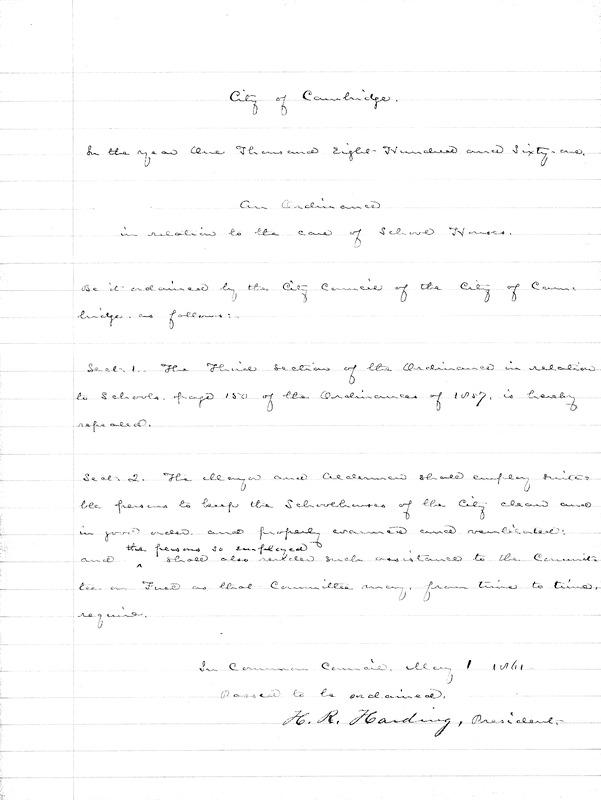 City of Cambridge.
In the year One Thousand Eight Hundred and Sixty-one.
An Ordinance
in relation to the care of School Houses.
Be it ordained by the City Council of the City of Cam-
bridge as follows:-
Sect: 1. The Third section of the Ordinance in relation
to Schools, page 150 of the Ordinances of 1857, is hereby
repealed.
Sect: 2. The Mayor and Aldermen shall employ suita-
ble persons to keep the Schoolhouses of the City clean and
in good order and properly warmed and ventilated;
the persons so employed
and ^ shall also render such assistance to the Commit-
tee on Fuel as that Committee may, from time to time,
require.
In Common Council, May 1 1861
Passed to be ordained.
H. R. Harding, President.